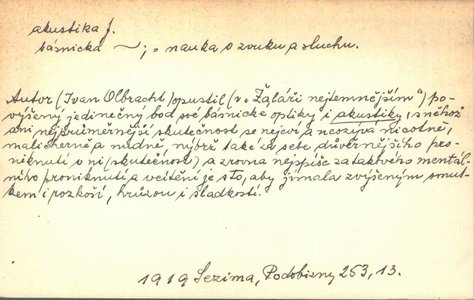 akustika f.
básnická ~; o nauka o zvuku a sluchu.
Autor (Ivan Olbracht) opustil (v „Žaláři nejtemnějším") po-
výšený jedinečný bod své básnické optiky i akustiky, s něhož
ani nejprůměrnější skutečnost se nejeví a neozývá nicotně,
malicherně a nudně, nýbrž také za sebe důvěrnějšího pro-
niknutí o ni (skutečnost) a zrovna nejspíše za takového mentál-
ního proniknutí a vcítění je s to, aby jímala zvýšeným smut-
kem i rozkoší, hrůzou i sladkostí.
1919 Sezima, Podobizny 253, 13.